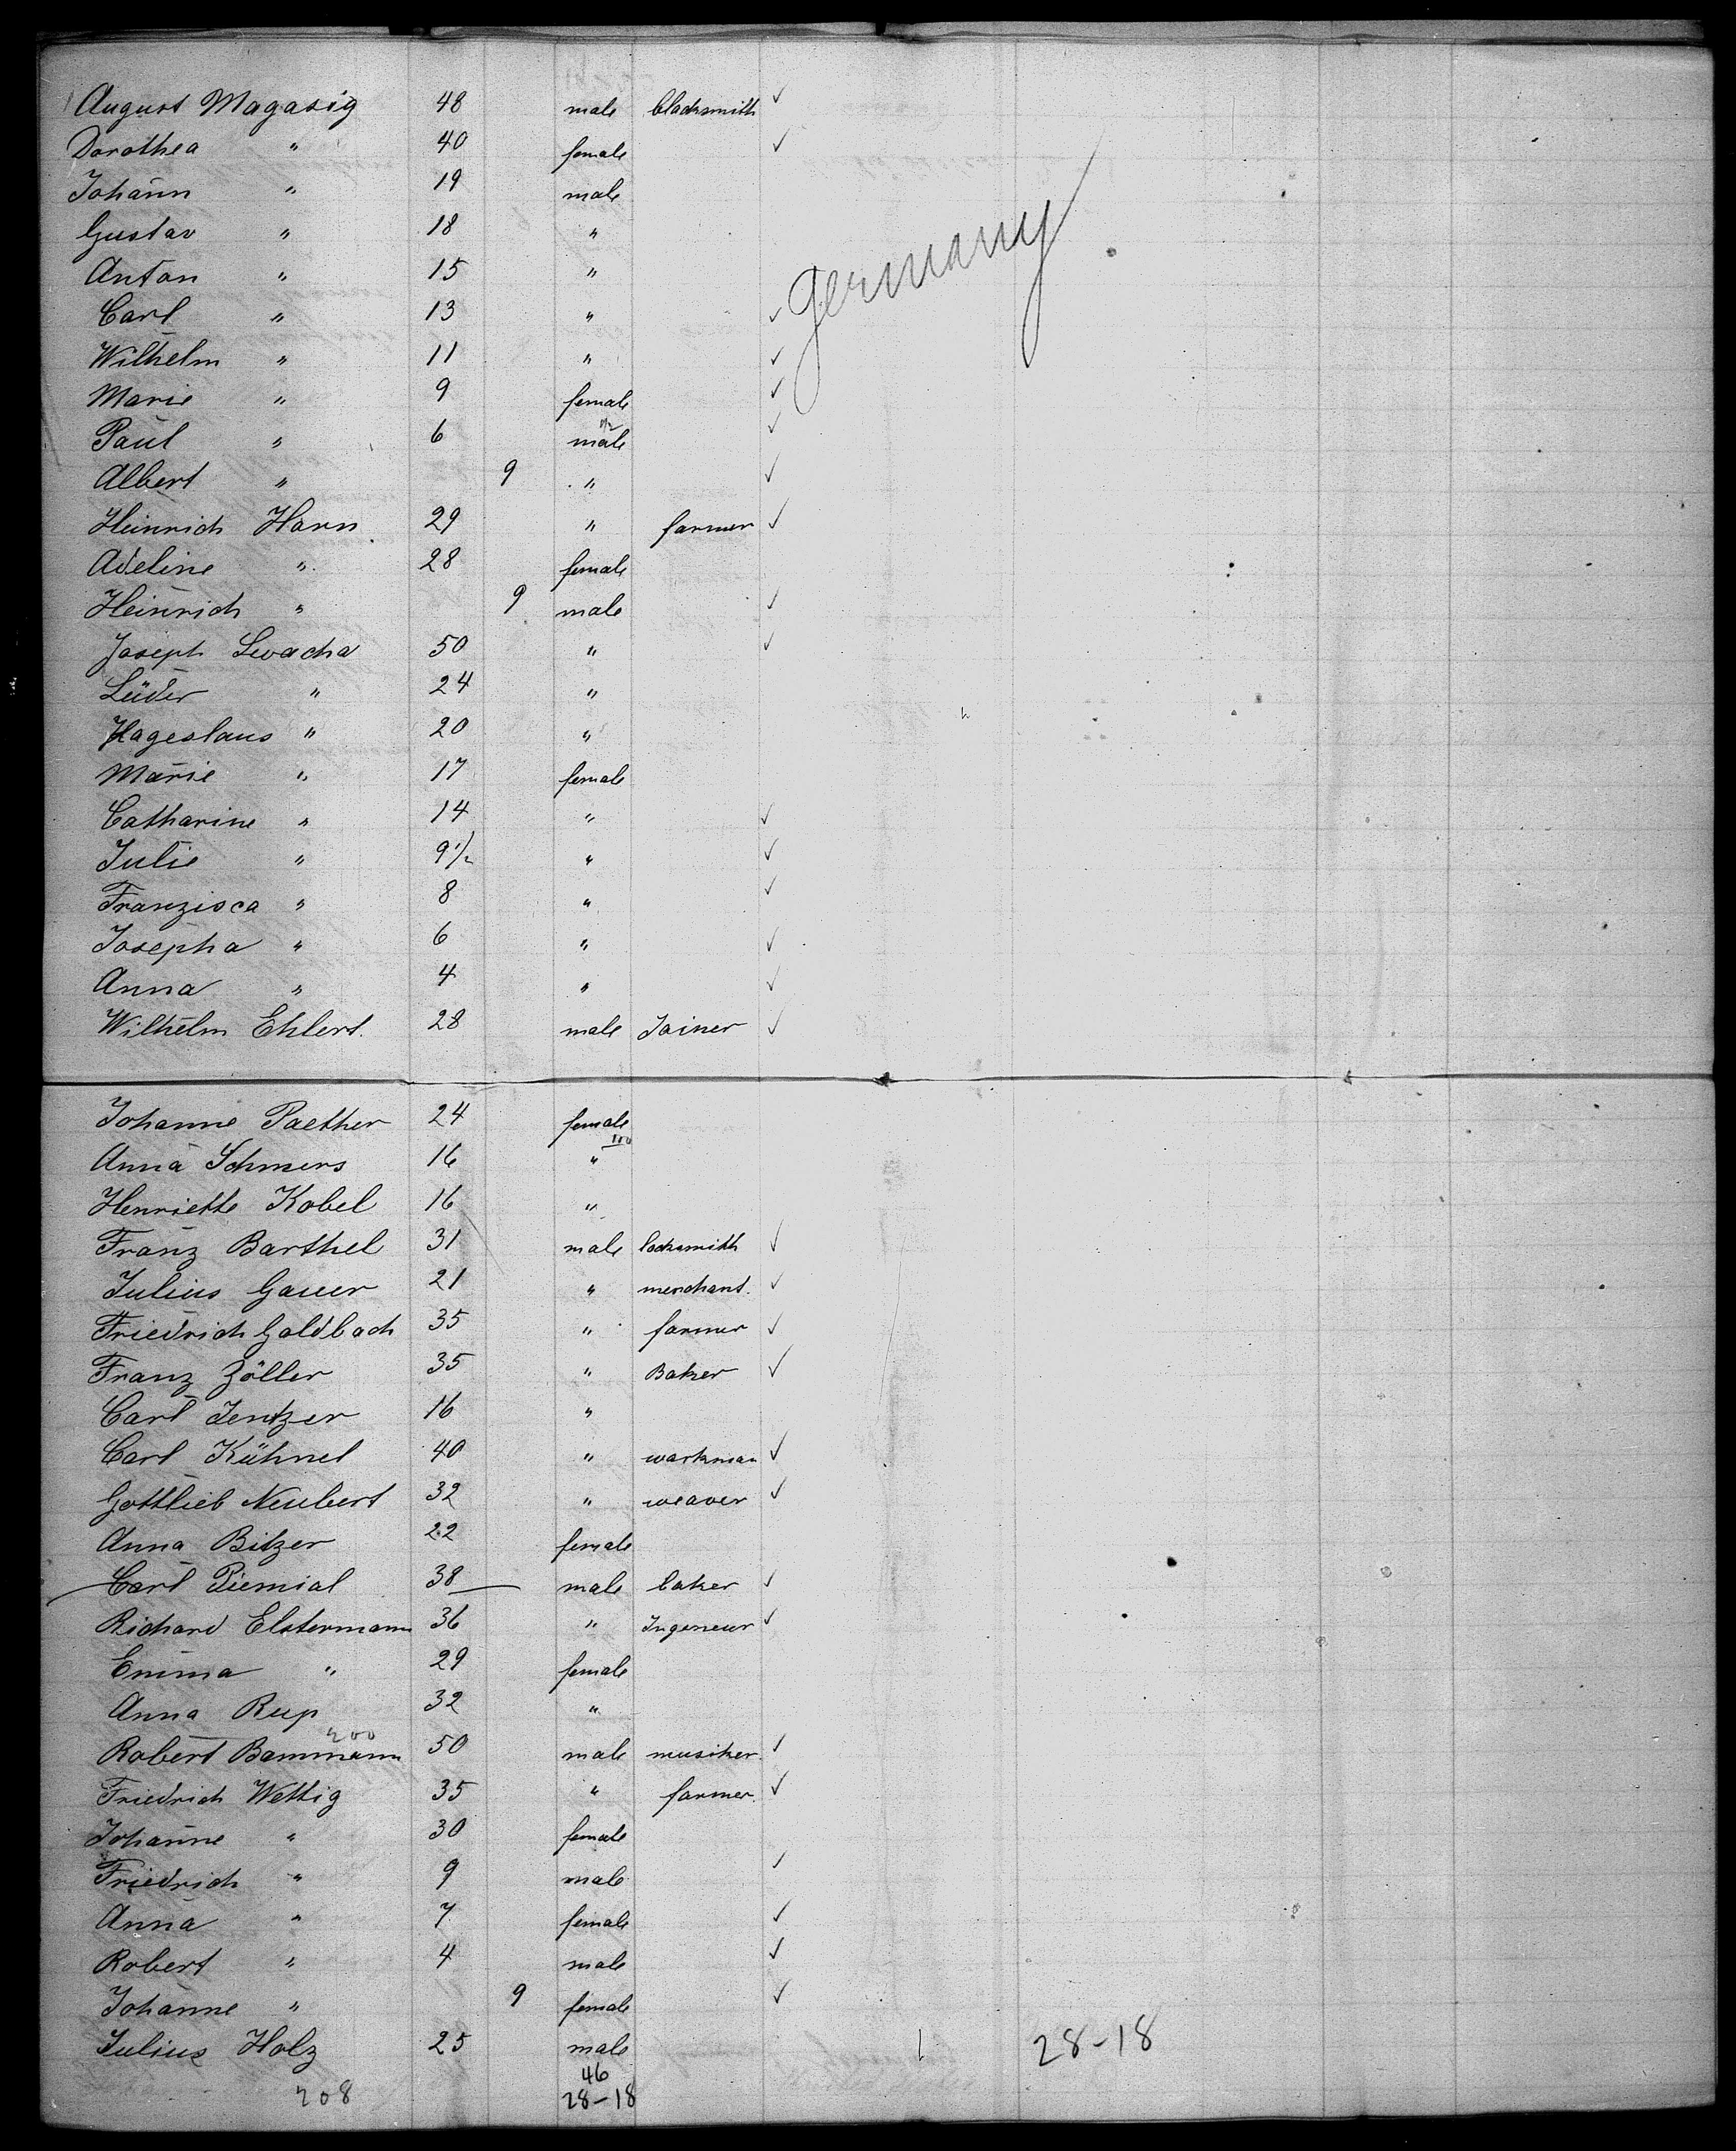 August Magasig 48 male blacksmith ✓
Dorothea " 40 female ✓
Johann " 19 male
Gustav " 18 "
Anton " 15 "
Germany
Carl " 13 " ✓
Wilhelm " 11 " ✓
Marie " 9 female ✓
Paul " 6 male ✓
Albert " 9 " ✓
Heinrich Horn 29 " farmer ✓
Adeline " 28 female
Heinrich " 9 male ✓
Joseph Swacha 50 " ✓
Lüder " 24 "
Hageslaus " 20 "
Marie " 17 female
Catharine " 14 " ✓
Julie " 9 1/2 " ✓
Franzisca " 8 " ✓
Josepha " 6 " ✓
Anna " 4 " ✓
Wilhelm Ehlert. 28 male Joiner ✓
Johanne Paether 24 female
Anna Schmers 16 "
Henriette Kobel 16 "
Franz Barthel 31 male locksmith ✓
Julius Gauer 21 " merchant. ✓
Friedrich Goldbach 35 " farmer ✓
Franz Zöller 35 " Baker ✓
Carl Jentzer 16 "
Carl Kühnel 40 " workman ✓
Gottlieb Neubert 32 " weaver ✓
Anna Bitzer 22 female
Carl Piemial 38 male baker ✓
Richard Elstermann 36 " Ingenieur ✓
Emma " 29 female
Anna Rup 32 "
200
Robert Bammann 50 male musiker. ✓
Friedrich Wettig 35 " farmer. ✓
Johanne " 30 female
Friedrich " 9 male ✓
Anna " 7 female ✓
Robert " 4 male ✓
Johanne " 9 female ✓
Julius Holz 25 male 28-18
46
208 28-18